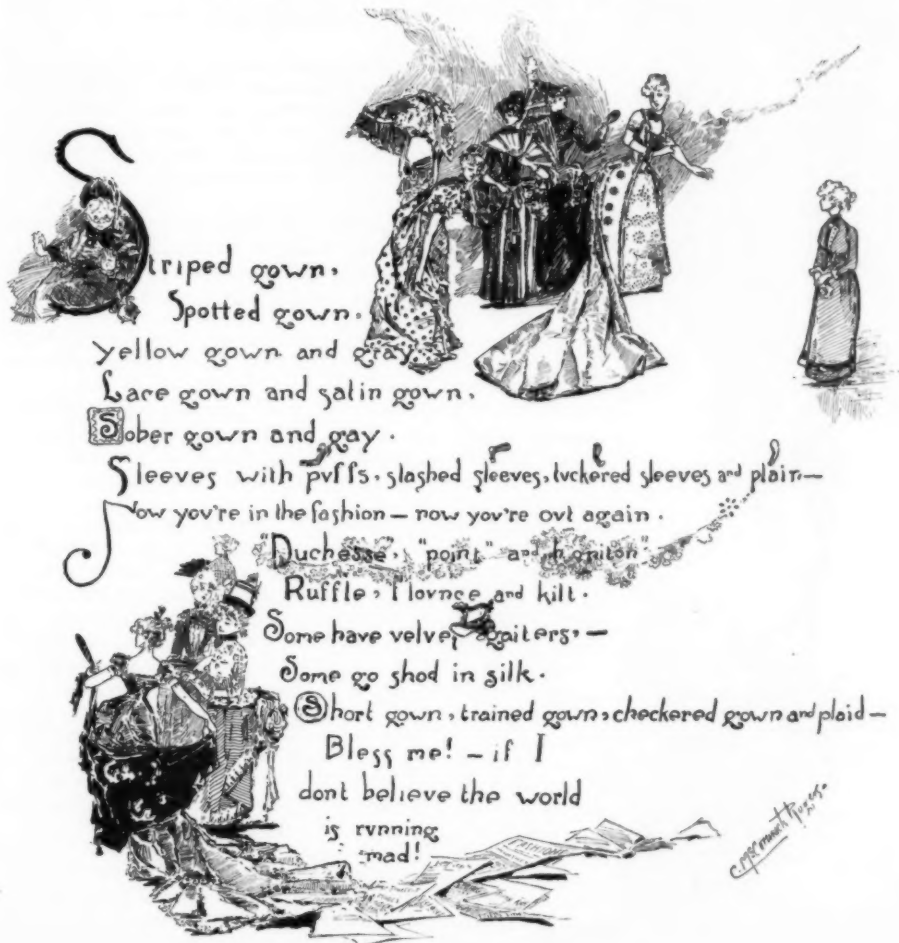 Striped gown,
Spotted gown,
Yellow gown and gray
Lace gown and satin gown,
Sober gown and gay.
Sleeves with puffs, slashed sleeves, tuckered sleeves and plain—
Now you're in the fashion — now you're out again.
"Duchesse", "point" and honiton"
Ruffle, flounce and kilt.
Some have velvet gaiters, —
Some go shod in silk.
Short gown, trained gown, checkered gown and plaid—
Bless me! — if I
dont believe the world
is running
mad!